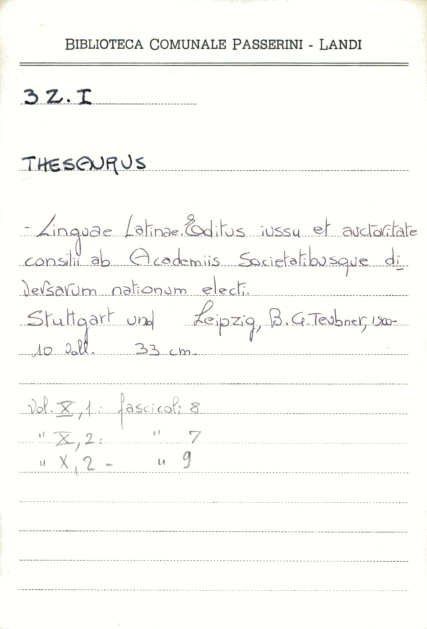 BIBLIOTECA COMUNALE PASSERINI - LANDI
3 Z. I
THESAURUS
- Linguae Latinae. Editus iussu et auctoritate
consilii ab Academiis Societatibusque di
versarum nationum electi.
Stuttgart und Leipzig, B.G. Teubner, 1900-
10 voll. 33 cm.
Vol. X, 1: fascicoli 8
" X, 2: " 7
" X, 2 - " 9